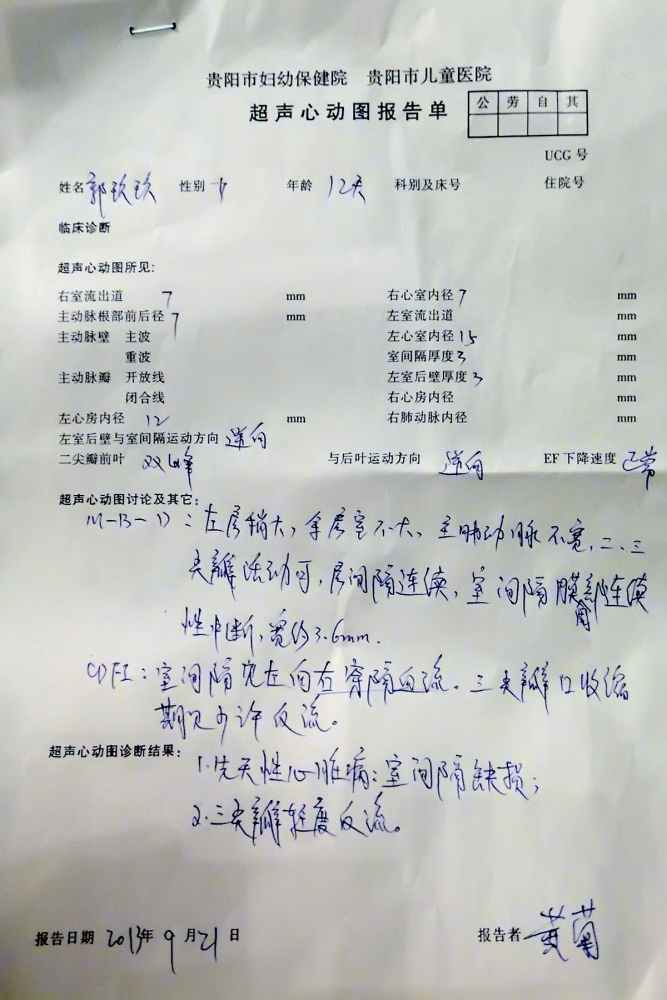 贵阳市妇幼保健院 贵阳市儿童医院
超声心动图报告单
公 劳 自 其
UCG 号
姓名 郭玖玖 性别 女 年龄 12天 科别及床号 住院号
临床诊断
超声心动图所见:
右室流出道 7 mm 右心室内径 7 mm
主动脉根部前后径 7 mm 左室流出道 mm
主动脉壁 主波 左心室内径 15 mm
重波 室间隔厚度 3 mm
主动脉瓣 开放线 左室后壁厚度 3 mm
闭合线 右心房内径 mm
左心房内径 12 mm 右肺动脉内径 mm
左室后壁与室间隔运动方向 逆向
二尖瓣前叶 双峰 与后叶运动方向 逆向 EF下降速度 正常
超声心动图讨论及其它:
M-B-D:左房稍大,余房室不大,主肺动脉不宽,二、三
尖瓣活动可,房间隔连续,室间隔膜周部连续
性中断,宽约3.6mm.
CDFI:室间隔见左向右穿隔血流。三尖瓣口收缩
期见少许反流。
超声心动图诊断结果: 1.先天性心脏病:室间隔缺损;
2.三尖瓣轻度反流。
报告日期 2013年 9 月 21 日 报告者 黄菊